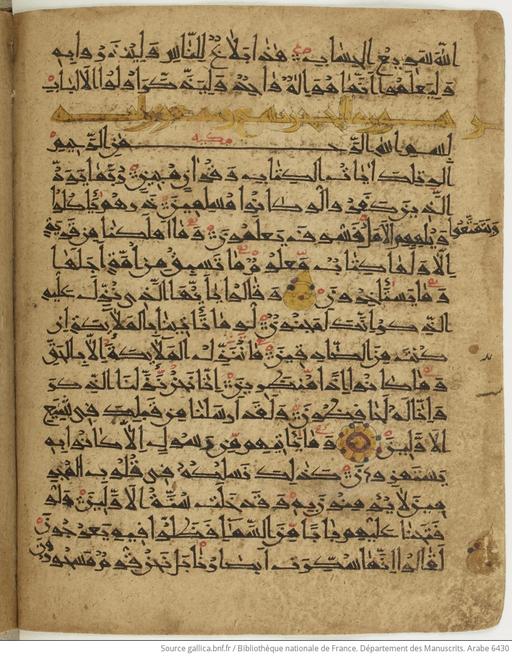 الله سريع الحساب هذا بلاغ للناس ولينذروا به
وليعلموا انما هو اله واحد وليذكر اولوا الالباب
سورة الحجر تسع وتسعون اية
مكية
بسم الله الرحمن الرحيم
الر تلك ايات الكتاب وقران مبين ربما يود
الذين كفروا لو كانوا مسلمين ذرهم ياكلوا
ويتمتعوا
ويلههم الامل فسوف يعلمون وما اهلكنا من قرية
الا ولها كتاب معلوم ما تسبق من امة اجلها
وما يستاخرون وقالوا يايها الذي نزل عليه
الذكر انك لمجنون لو ما تاتينا بالملايكة ان
كنت من الصادقين ما ننزل الملايكة الا بالحق
وما كانوا اذا منظرين انا نحن نزلنا الذكر
وانا له لحافظون ولقد ارسلنا من قبلك في شيع
الاولين وما ياتيهم من رسول الا كانوا به
يستهزءون كذلك نسلكه في قلوب المجر
مين لا يومنون به وقد خلت سنة الاولين ولو
فتحنا عليهم بابا من السما فظلوا فيه يعرجون
لقالوا انما سكرت ابصارنا بل نحن قوم مسحورون
Source gallica.bnf.fr / Bibliothèque nationale de France. Département des Manuscrits. Arabe 6430